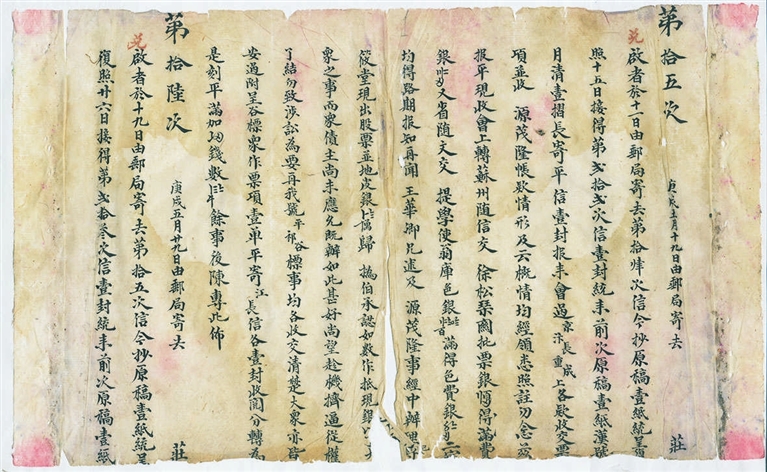 第拾五次
庚戌五月十九日由郵局寄去 莊
兑
啟者於十一日由郵局寄去第拾肆次信今抄原稿壹紙統呈
照十五日接得第弍拾弍次信壹封統來前次原稿壹紙漢號
月清壹摺長寄平信壹封報來會過京長成汴重上各款收交票
項並收 源茂隆帳欵情形及云概情均經領悉照註勿念
報平現收會上轉蘇州隨信交 徐松琹國批票銀 得滿費
銀 又省隨文交 提學使翁庫色銀 滿得色費銀
均得路期報知再聞 王華卿兄述及 源茂隆事經中辦
筱堂現出股票並地皮銀 歸 揚伯承認如數作抵現銀
衆之事而衆債主尚未應允既辦如此甚好尚望趁機擠逼從權
了結勿致涉訟為要再我號平祁谷標事均各收交清楚大衆亦皆
安過附呈谷標衆作票項壹单平寄江長信各壹封收閱分轉為
是刻平滿加 錢數 餘事後陳專此佈
第拾陸次
庚戌五月廿九日由郵局寄去 莊
兑
啟者於十九日由郵局寄去第拾五次信今抄原稿壹紙統呈
復照廿六日接得第弍拾叁次信壹封統來前次原稿壹紙